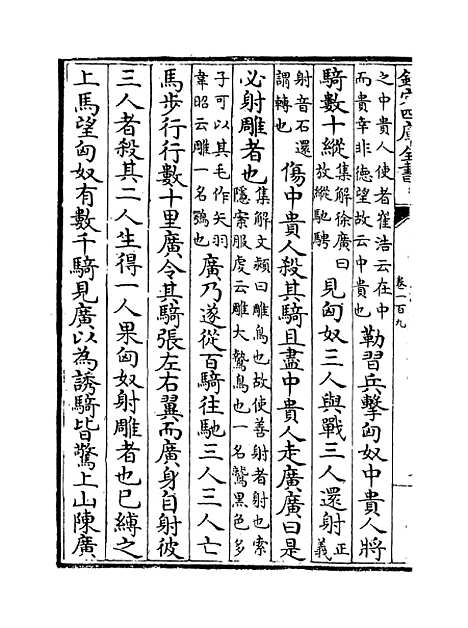 欽定四庫全書
卷一百九
之中貴人使者崔浩云在中
而貴幸非德望故云中貴也
勒習兵擊匈奴中貴人將
騎數十縱
集解徐廣曰
放縱馳騁
見匈奴三人與戰三人還射
正
義
射音石還
謂轉也
傷中貴人殺其騎且盡中貴人走廣廣曰是
必射雕者也
集解文穎曰雕鳥也故使善射者射也索
隱案服虔云雕大鷙鳥也一名鷲黑色多
子可以其毛作矢羽
韋昭云雕一名鶚也
廣乃遂從百騎往馳三人三人亡
馬步行行數十里廣令其騎張左右翼而廣身自射彼
三人者殺其二人生得一人果匈奴射雕者也已縛之
上馬望匈奴有數千騎見廣以為誘騎皆驚上山陳廣